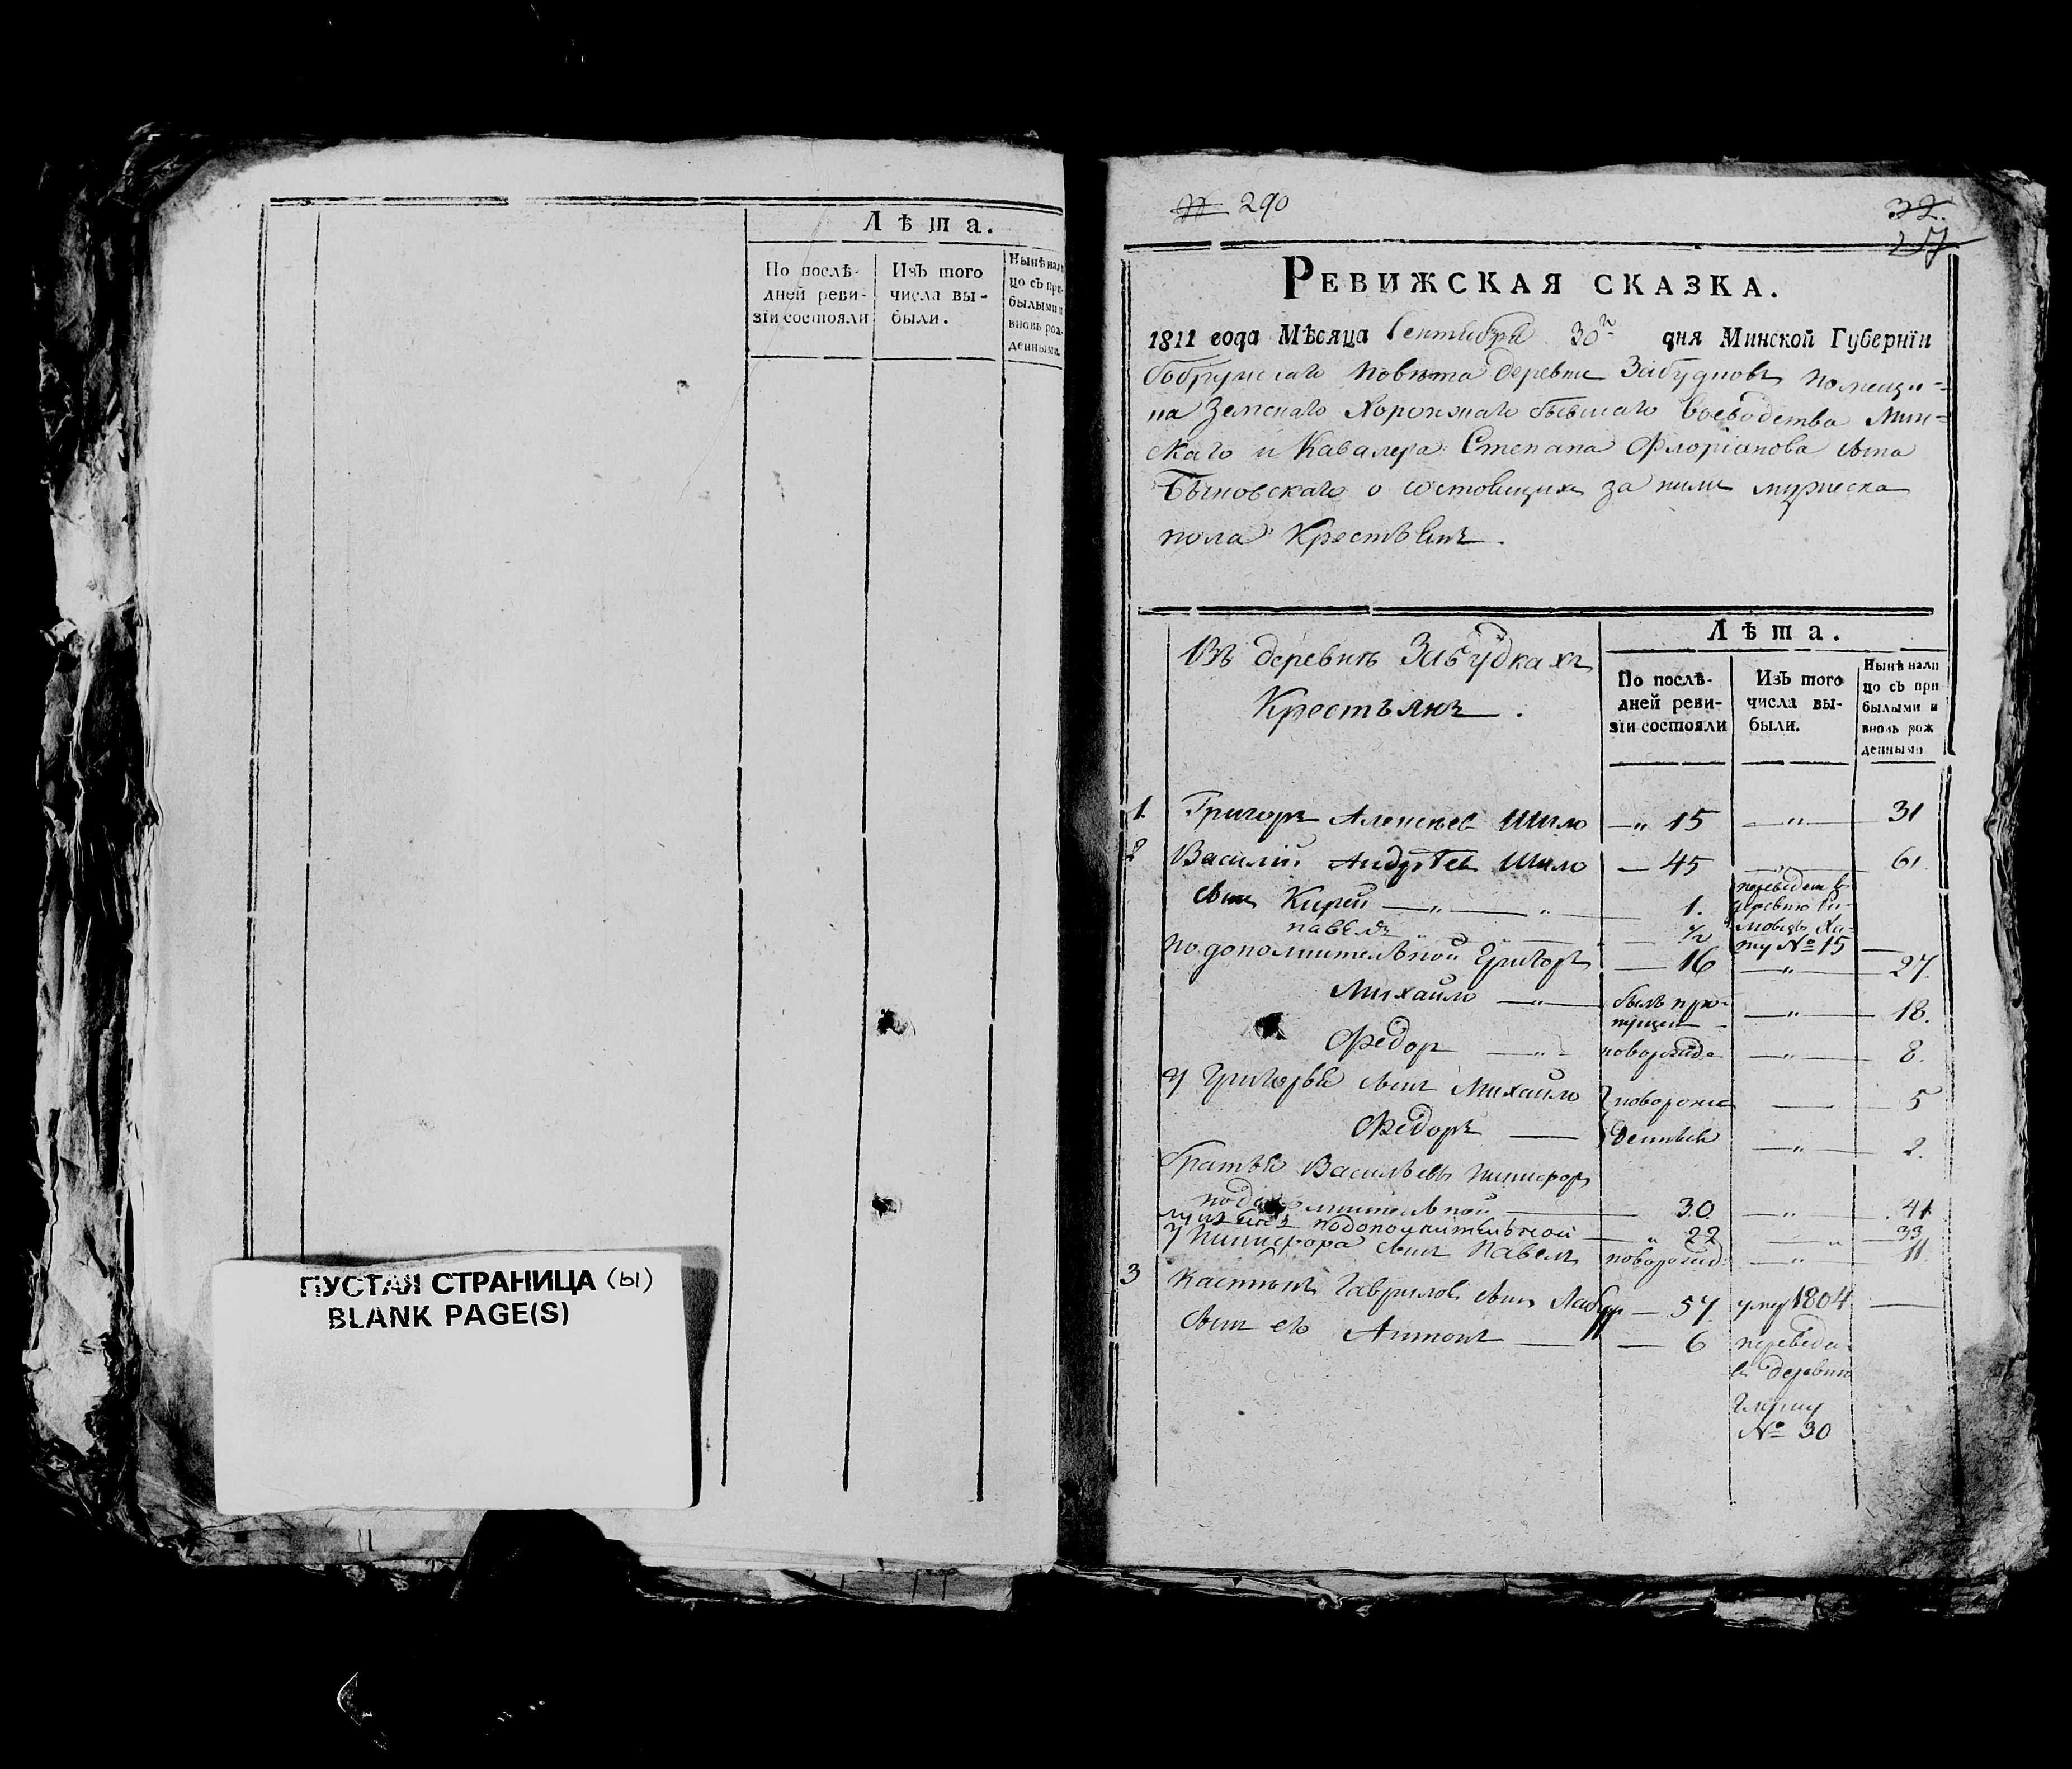 Лѣта.
По послѣ-
дней реви-
зіи состояли
Изъ того
числа вы-
были.
Нынѣ нали
цо съ при-
былыми и
вновь рож-
денными.
ПУСТАЯ СТРАНИЦА (ы)
BLANK PAGE(S)
290
32.
Ревижская сказка.
1811 года Мѣсяца Сентября 30го дня Минской Губерніи
Бобруйскаго Повѣта деревни Забудковъ помещи-
ка Земскаго Хорунжаго бывшаго Воеводства Мин-
скаго и Кавалера Степана Флоріянова сына
о состоящихъ за ними мужеска
пола Крестьянъ.
Въ деревнѣ Забудкахъ
Крестьянъ.
Лѣта.
По послѣ-
дней реви-
зіи состояли
Изъ того
числа вы-
были.
Нынѣ нали
цо съ при
былыми и
вновь рож
денными
1. Григоръ Алексѣев Шило — 15 — 31
2 Василій Андрѣев Шило — 45 — 61.
сынъ Кирей — 1. переведен в
деревню
павелъ — 1/2 №15
по дополнительной Григоръ — 16 — 27.
Михайло — былъ про-
пущен — 18.
Федор — новорожде — 8.
у Григорья сынъ Михайло новорож — 5
Федоръ — денные — 2.
братья Васильевы Никифоръ
по дополнительной — 30 — 41
по дополнительной — 22 — 33
у Никифора сынъ Павелъ новорожд: — 11.
3 Гаврилов сынъ — 57 умер 1804 —
сынъ его Антонъ — 6 переведе-
в деревню
№ 30